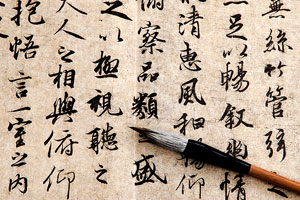 無絲竹管弦
足以暢叙幽情
清惠風和暢仰
俯察品類之盛
以極視聽之
人之相與俯仰
抱悟言一室之内